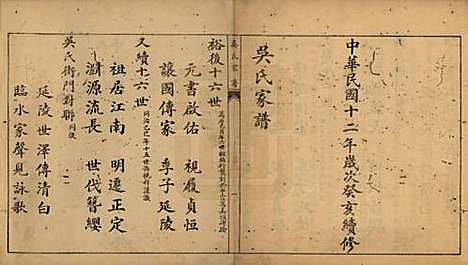 中華民國十二年歲次癸亥續修
吳氏家譜
吳氏家譜
裕後十六世
元書啟佑 視履貞恒
讓國傳家 季子延陵
又續十六世
祖居江南 明遷正定
淵源流長 世代簪纓
吳氏街門對聯 列後
延陵世澤傳清白
臨水家聲見詠歌